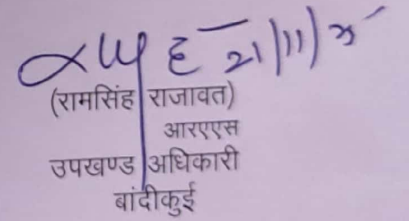 21/11/
(रामसिंह राजावत)
आरएएस
उपखण्ड अधिकारी
बांदीकुई